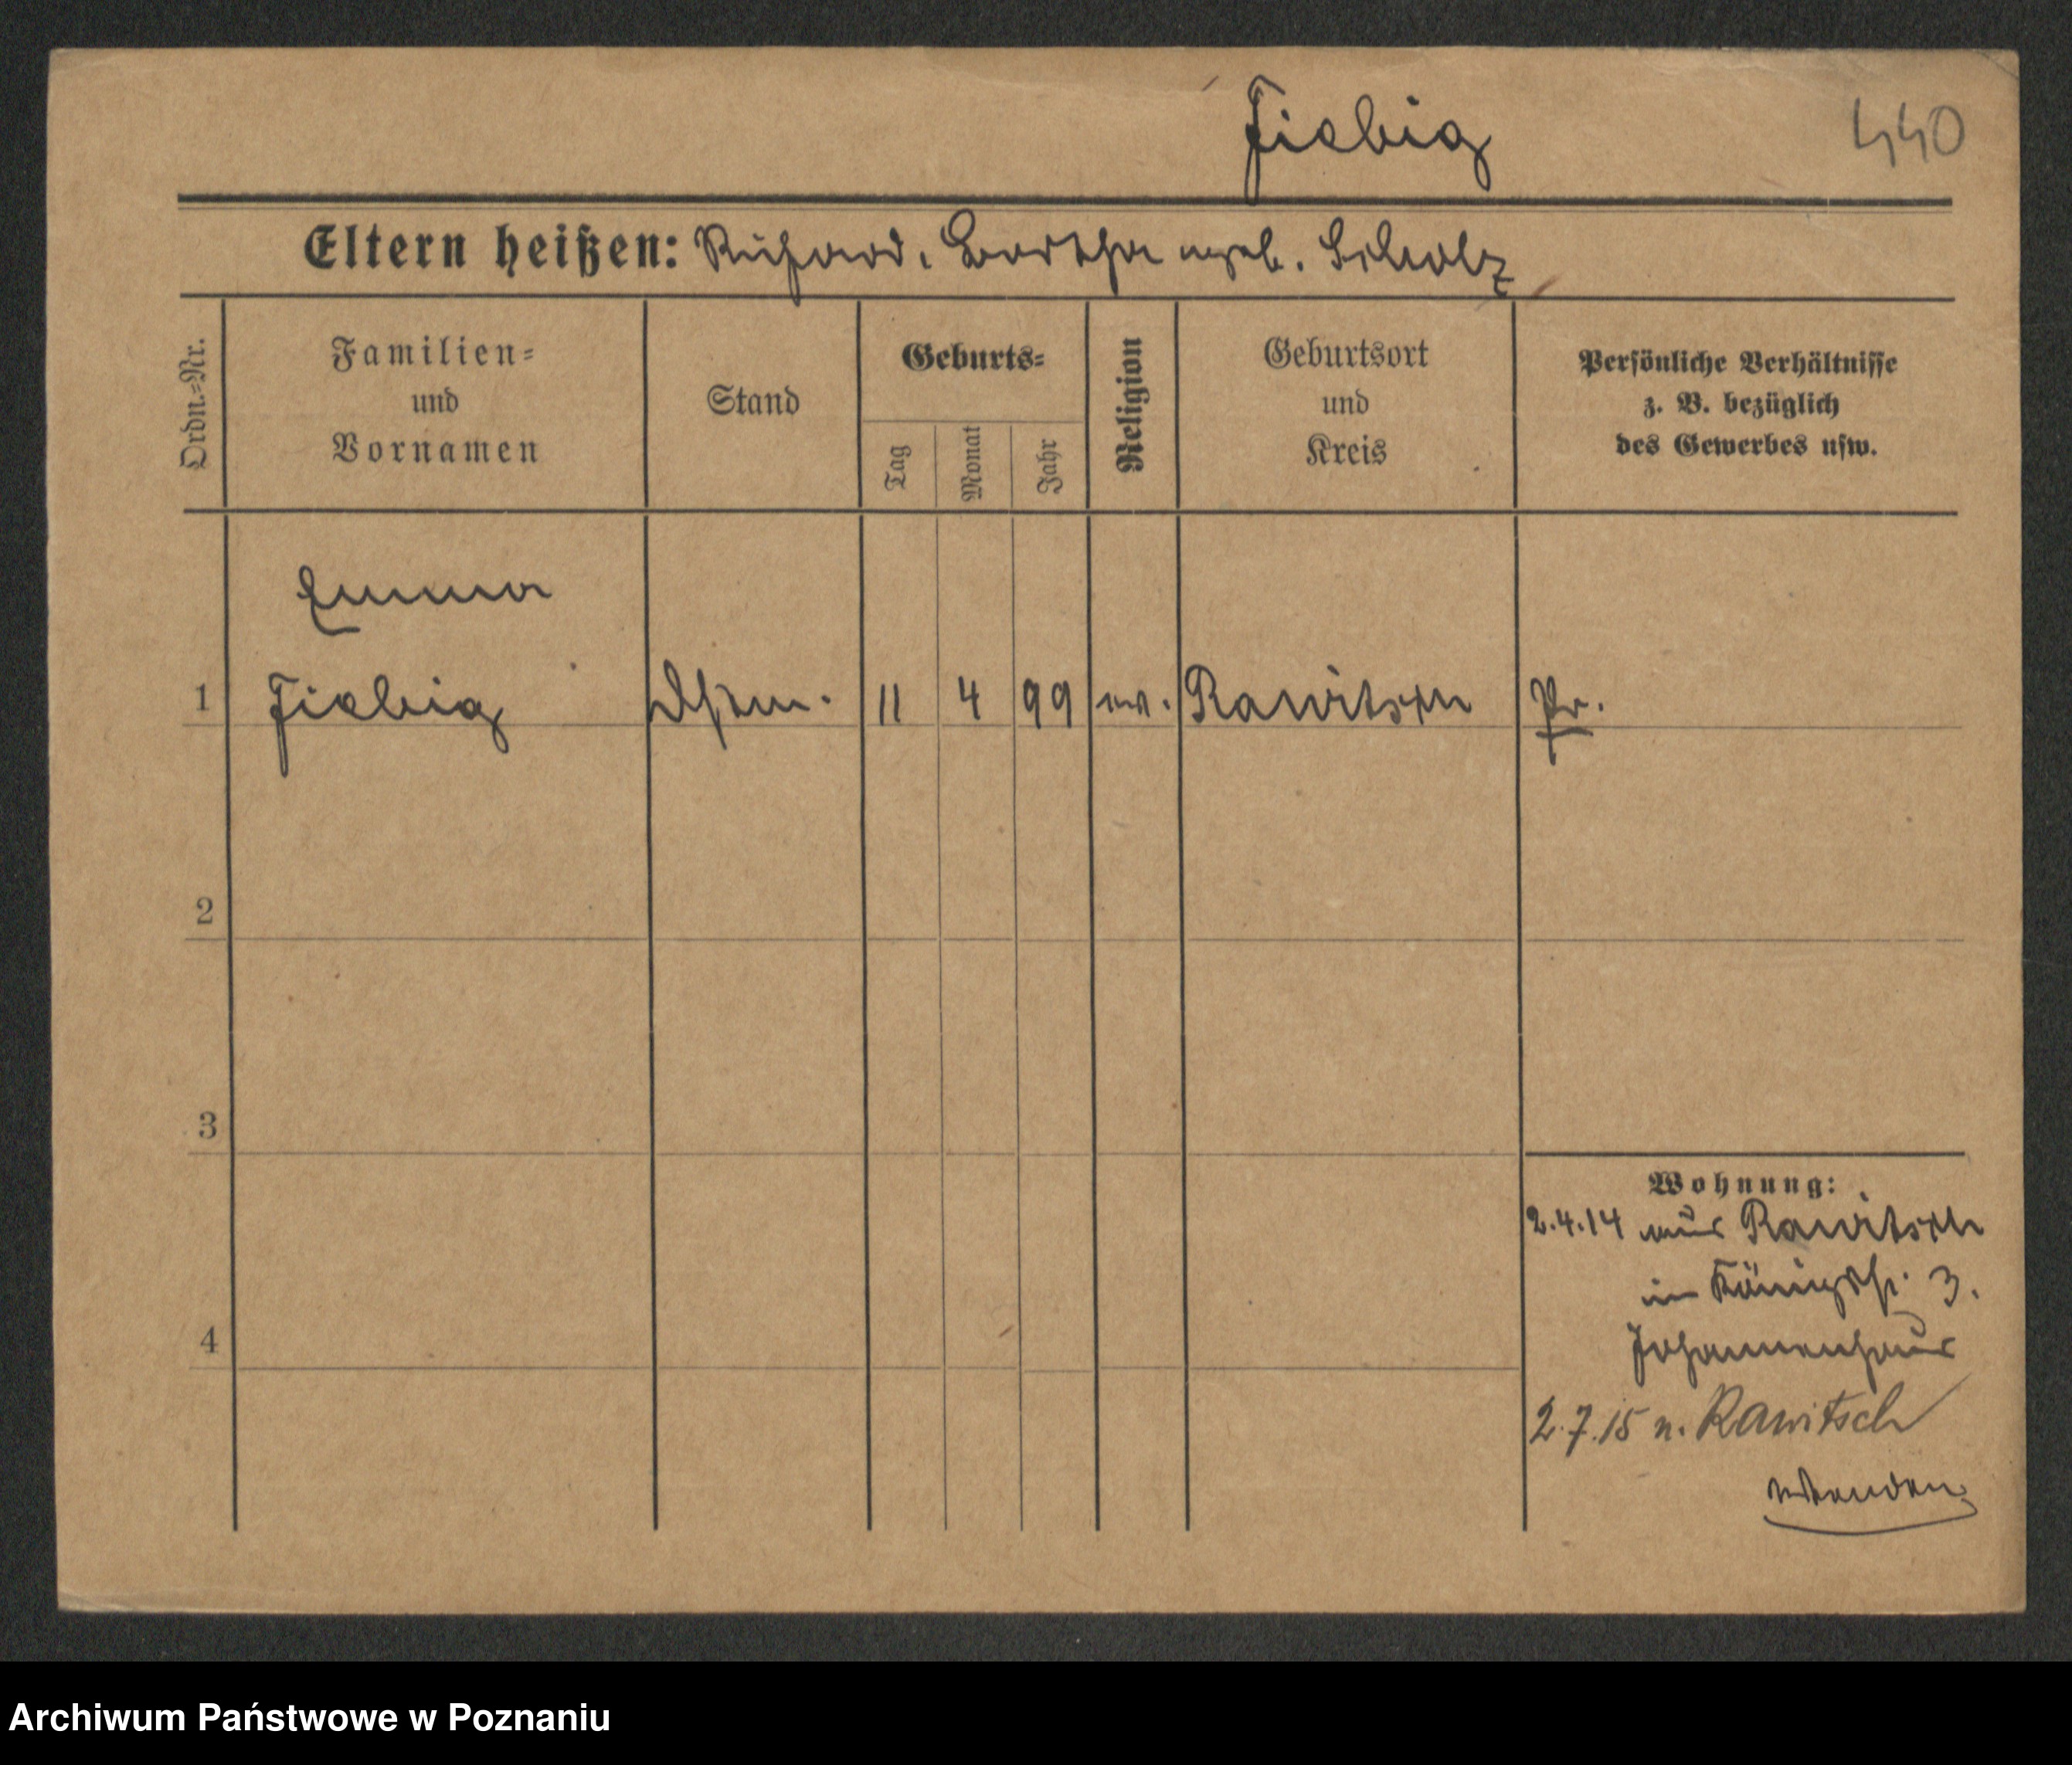 Fiebig
440
Eltern heißen: Richard, Bertha geb. Scholz
Ordn.=Nr.
Familien=
und
Vornamen
Stand
Geburts=
Tag
Monat
Jahr
Religion
Geburtsort
und
Kreis
Persönliche Verhältnisse
z. B. bezüglich
des Gewerbes usw.
Emma
1 Fiebig 11 4 99 ev. Rawitsch Pr.
2
3
4
Wohnung:
2.4.14 aus Rawitsch
in Königstr. 3.
Johannenhaus
2.7.15 n. Rawitsch
wenden
Archiwum Państwowe w Poznaniu